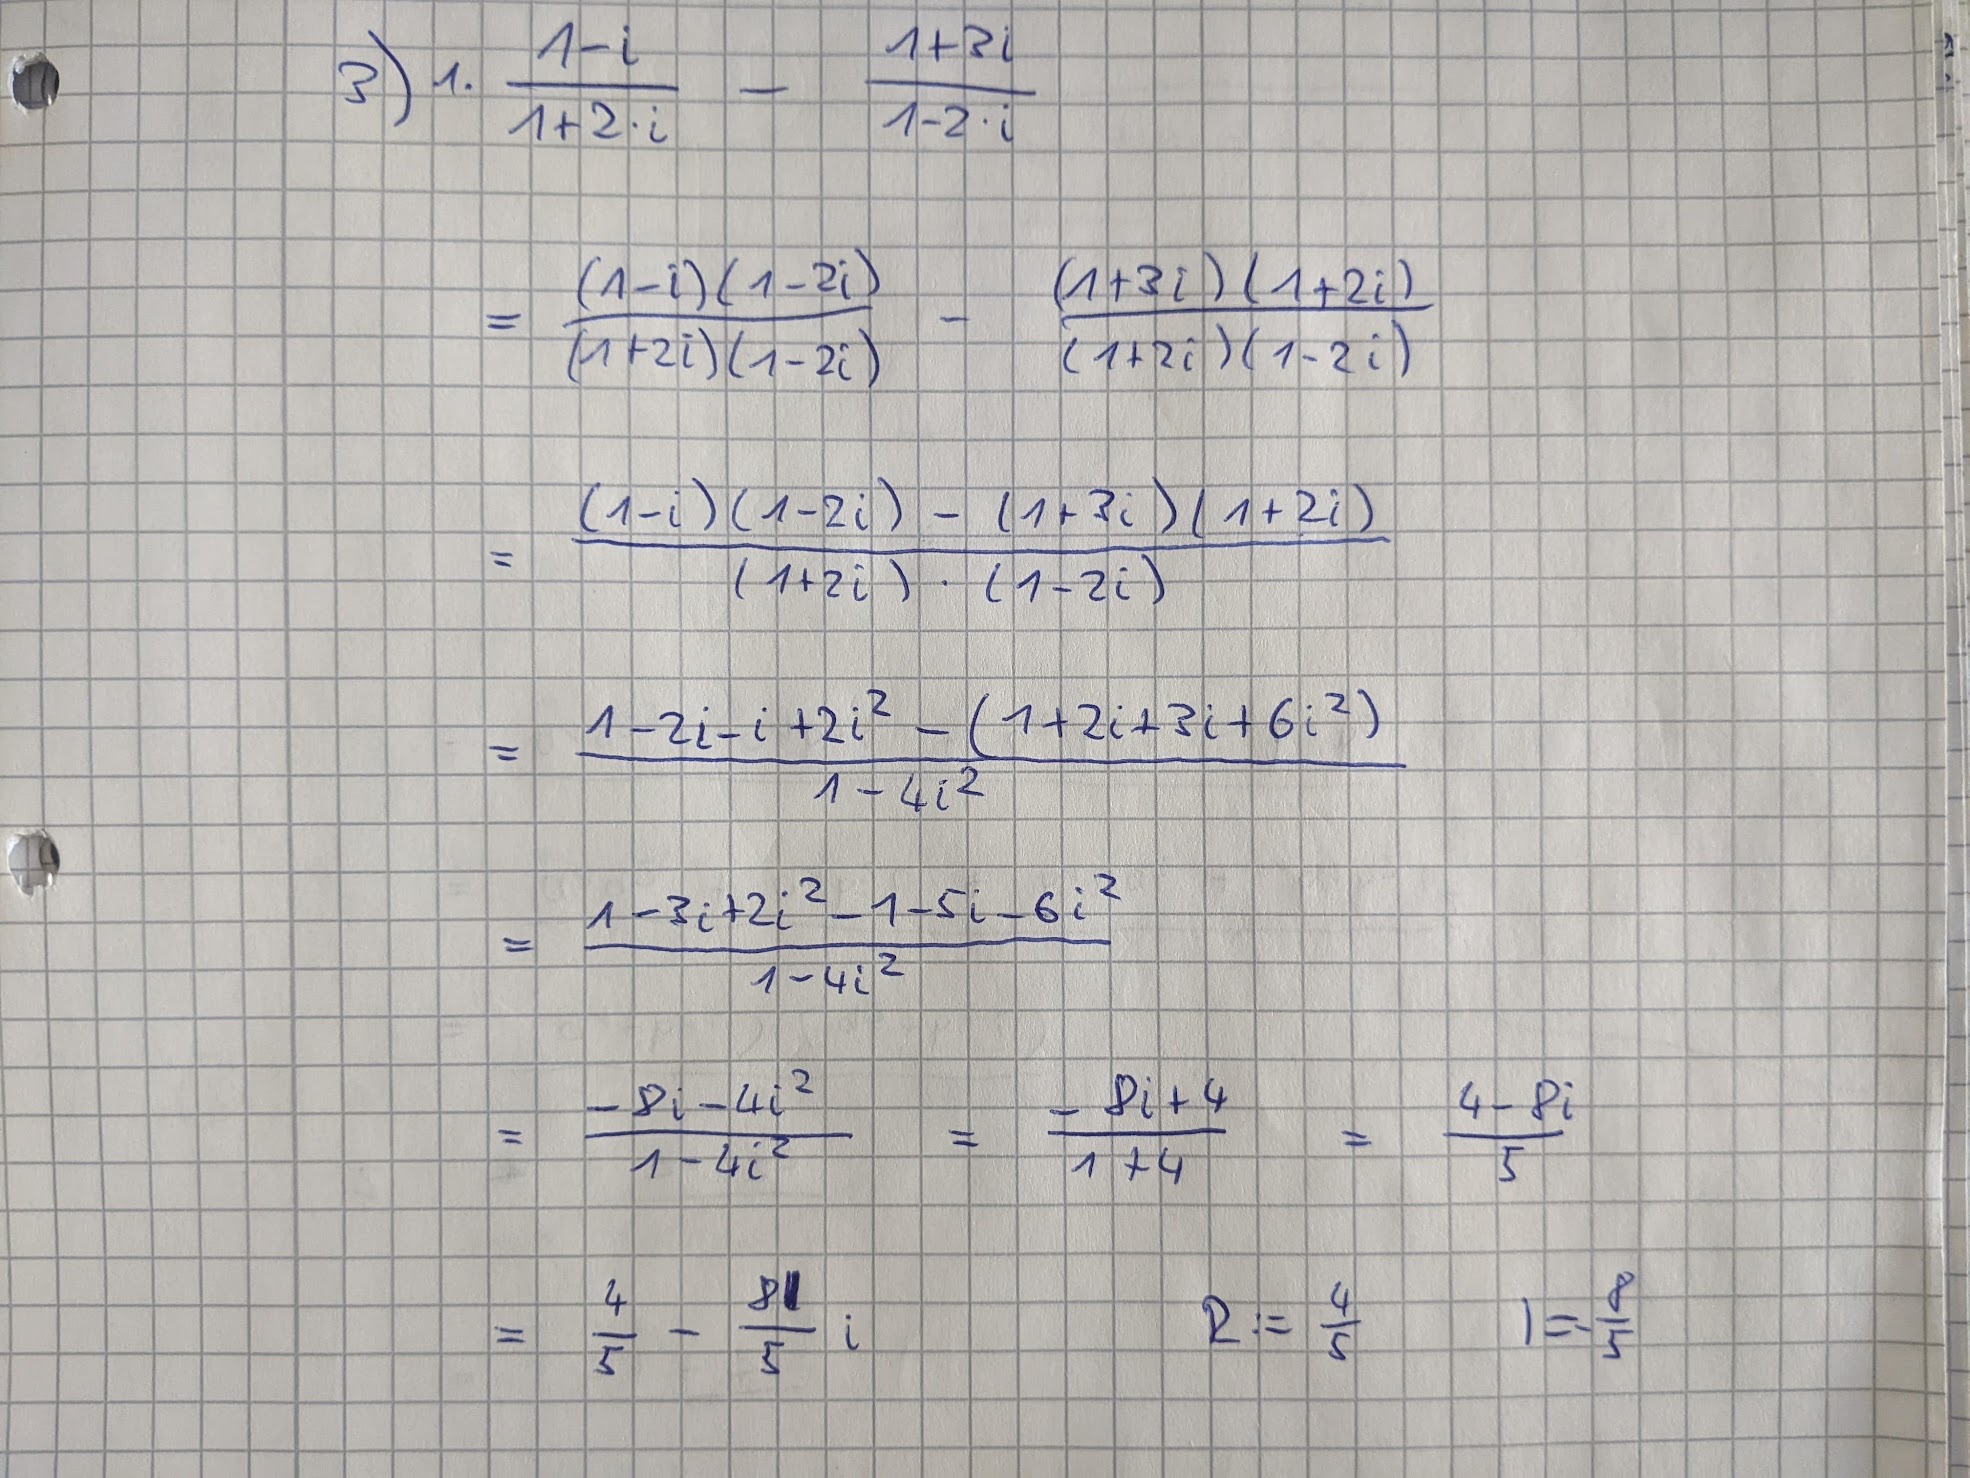 3) 1. (1-i)/(1+2·i) - (1+3i)/(1-2·i)
= ((1-i)(1-2i))/((1+2i)(1-2i)) - ((1+3i)(1+2i))/((1+2i)(1-2i))
= ((1-i)(1-2i) - (1+3i)(1+2i))/((1+2i)·(1-2i))
= (1-2i-i+2i² - (1+2i+3i+6i²))/(1-4i²)
= (1-3i+2i²-1-5i-6i²)/(1-4i²)
= (-8i-4i²)/(1-4i²) = (-8i+4)/(1+4) = (4-8i)/5
= 4/5 - 8/5 i R := 4/5 I = -8/5